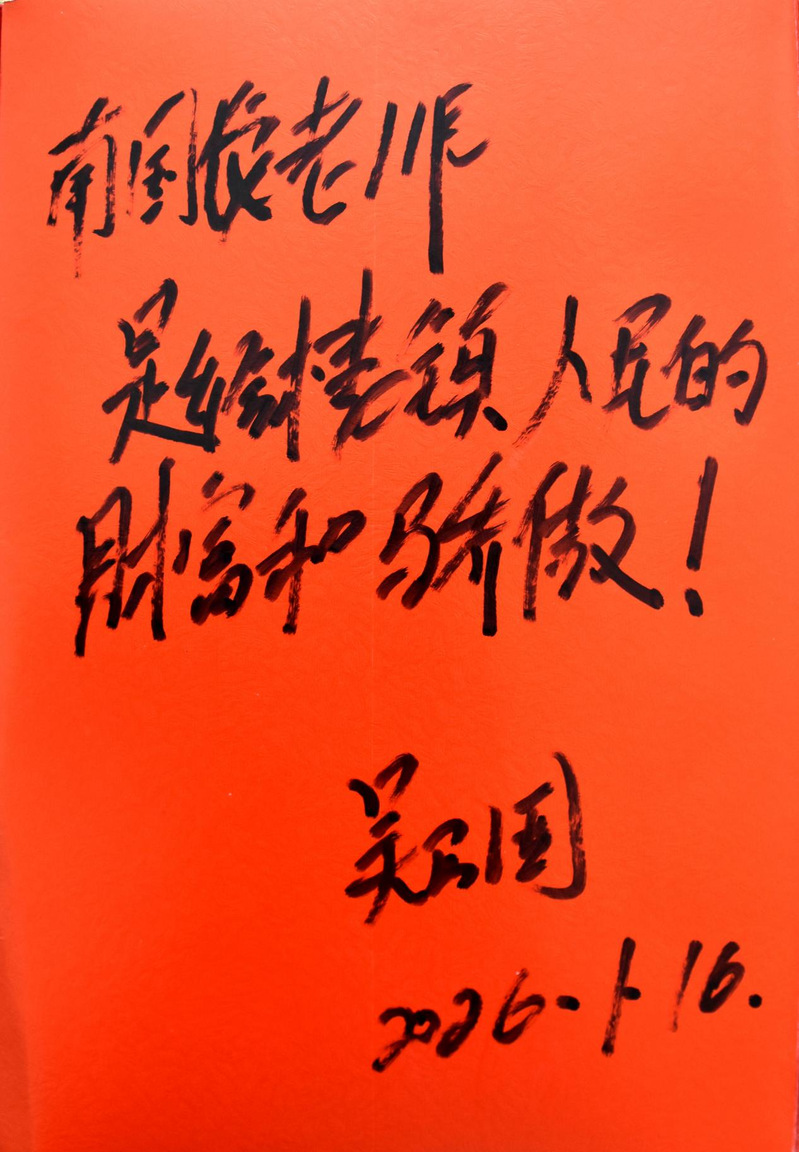 南国农老师
是 镇人民的
财富和骄傲!
吴 国
2026.1.16.